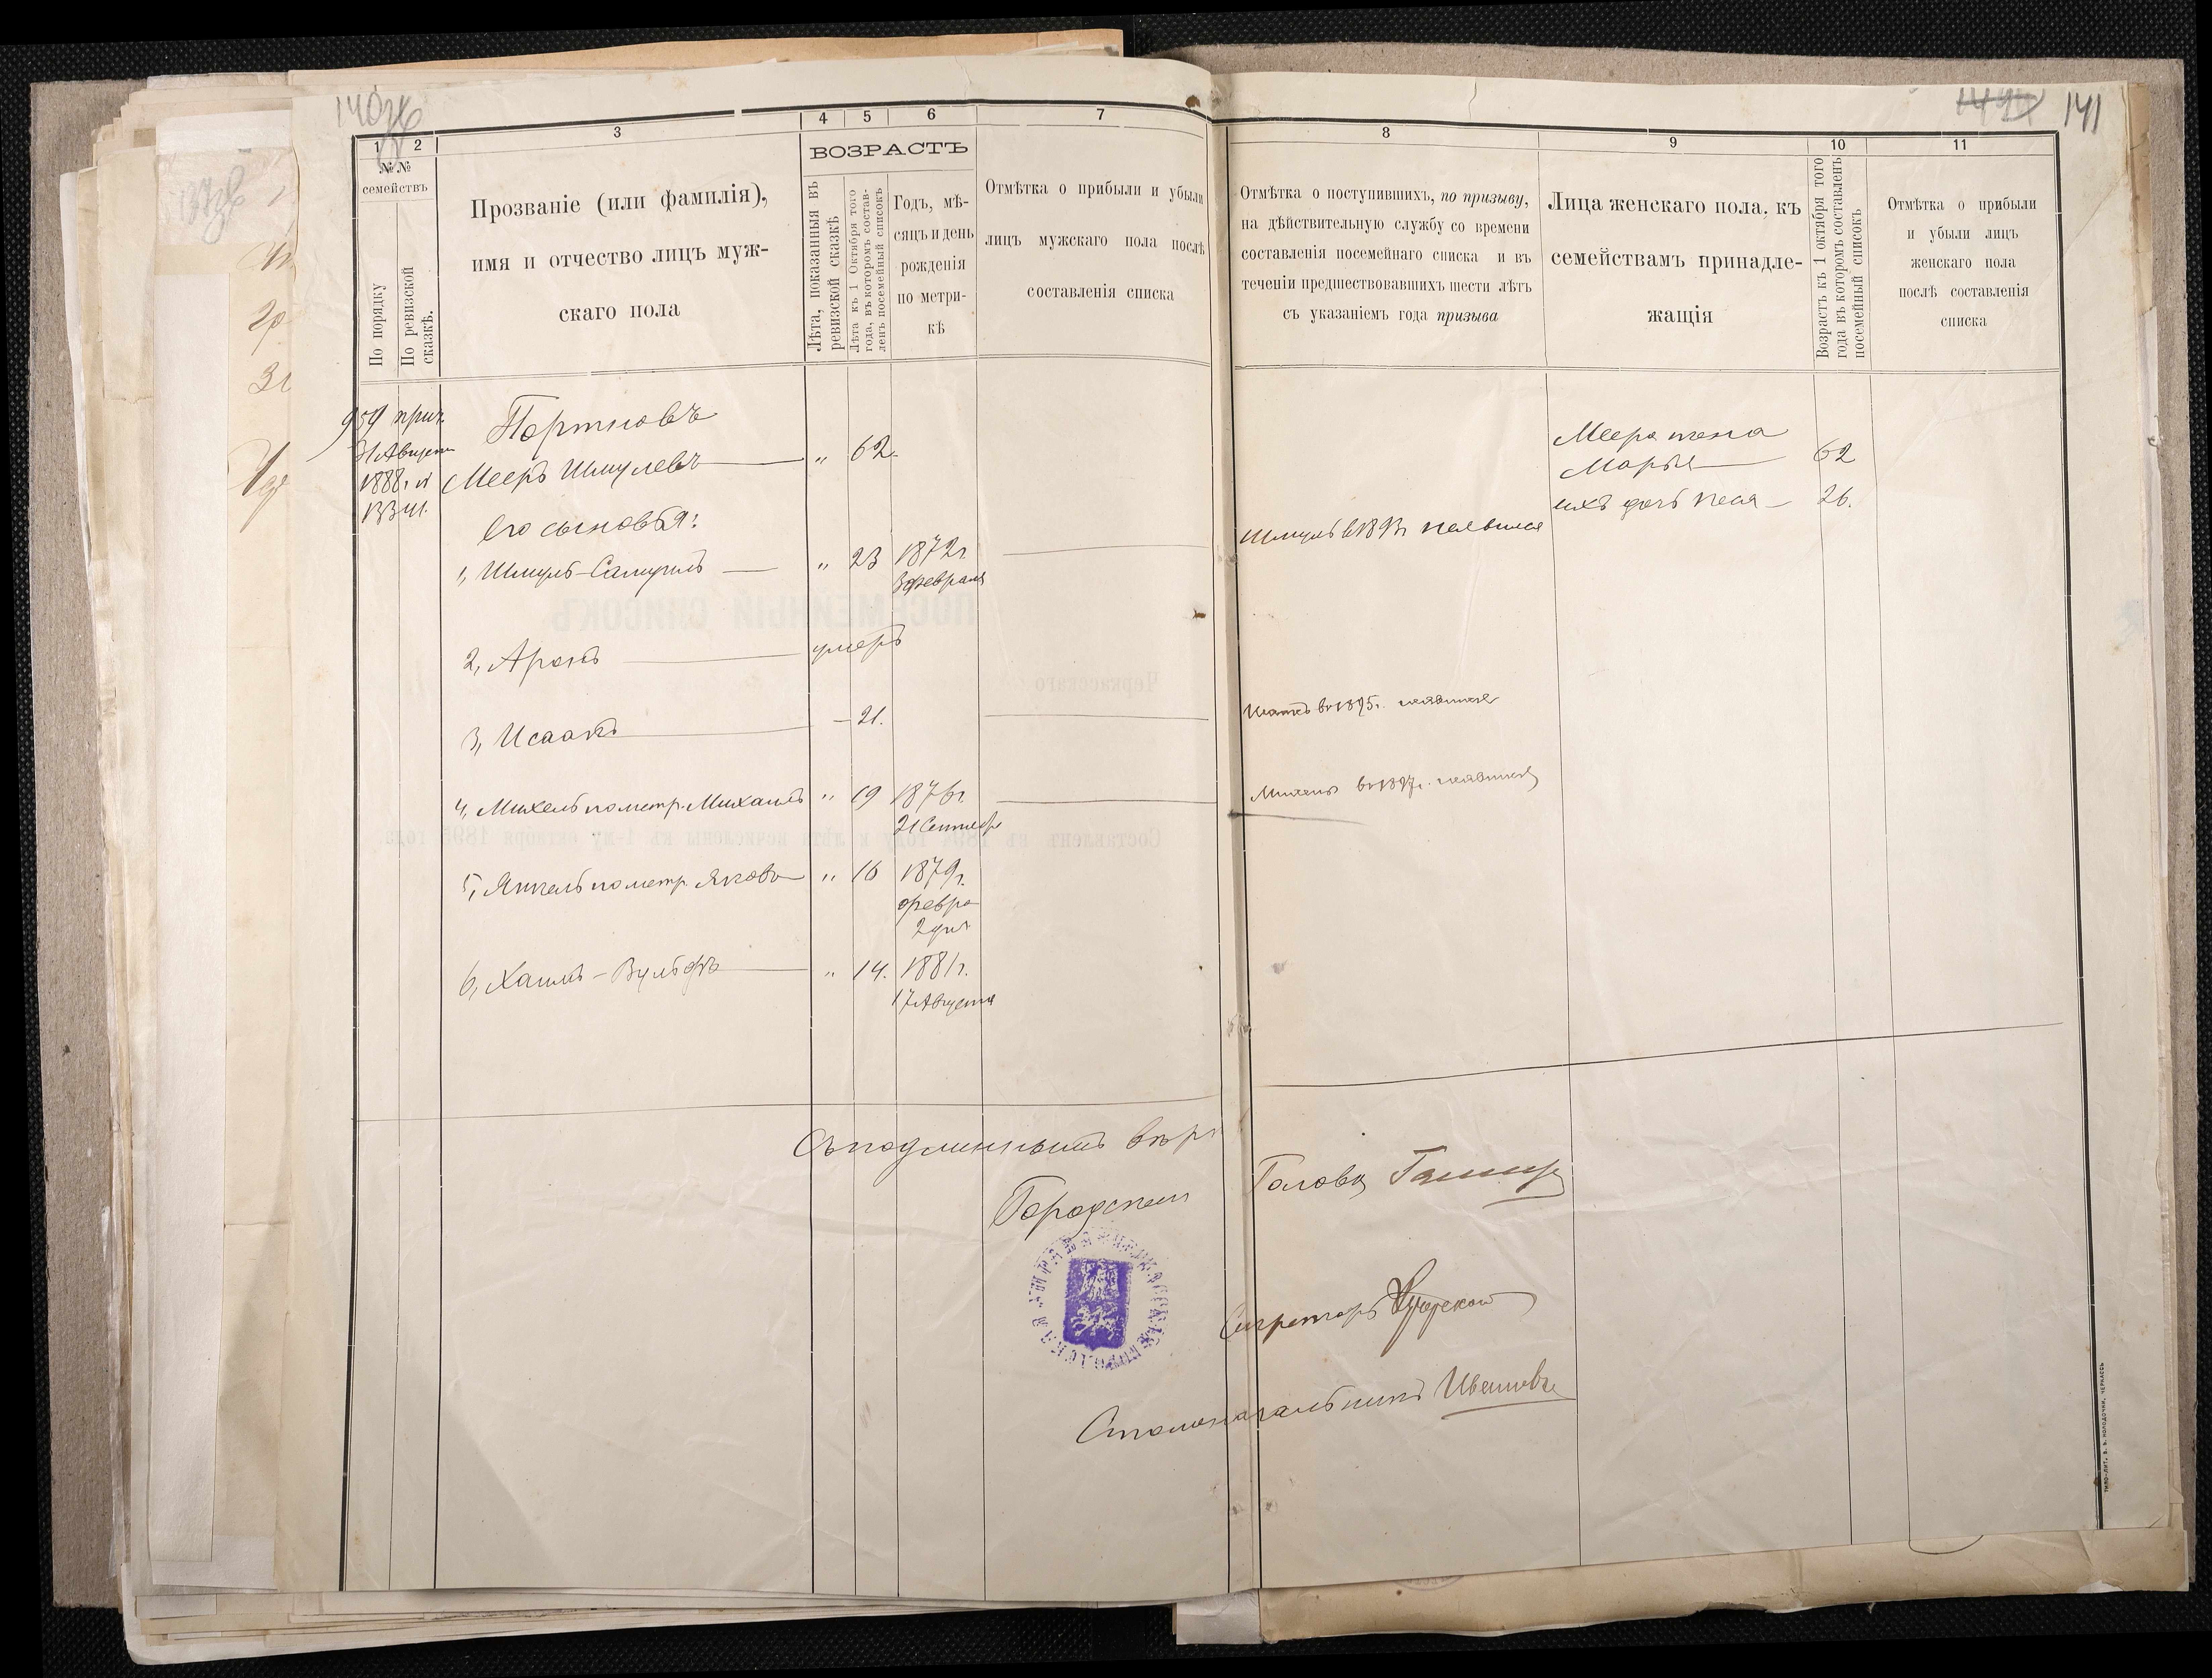 140
141
1 2 3 4 5 6 7
№№ семействъ
По порядку
По ревизской сказкѣ.
Прозваніе (или фамилія),
имя и отчество лицъ муж-
скаго пола
ВОЗРАСТЪ
Лѣта, показанныя въ
ревизской сказкѣ
Лѣта къ 1 Октября того
года, въ которомъ состав-
ленъ посемейный списокъ
Годъ, мѣ-
сяцъ и день
рожденія
по метри-
кѣ
Отмѣтка о прибыли и убыли
лицъ мужскаго пола послѣ
составленія списка
959 прич.
31 Августа
1888 г. №
1331.
Портновъ
Мееръ Шмулевъ " 62
Его сыновья:
1, Шмуль-Самуилъ " 23 1872 г.
3 февраля
2, Аронъ умеръ
3, Исаакъ - 21.
4, Михель по метр. Михаилъ " 19 1876 г.
21 Сентябр
5, Янкель по метр. Яковъ " 16 1879 г.
февра
2 дня
6, Хаимъ-Вульфъ " 14. 1881 г.
17 Августа
Съ подлиннымъ вѣрн
Городской
8 9 10 11
Отмѣтка о поступившихъ, по призыву,
на дѣйствительную службу со времени
составленія посемейнаго списка и въ
теченіи предшествовавшихъ шести лѣтъ
съ указаніемъ года призыва
Лица женскаго пола, къ
семействамъ принадле-
жащія
Возрастъ къ 1 октября того
года въ которомъ составленъ
посемейный списокъ
Отмѣтка о прибыли
и убыли лицъ
женскаго пола
послѣ составленія
списка
Меера жена
Марья 62
ихъ дочь Песя 26.
Шмуль в 1893 г. неявился
Исаакъ в 1895 г. неявился
Михель в 1897 г. неявился
Голова
Секретарь
Столоначальникъ
ПОСЕМЕЙНЫЙ СПИСОКЪ
Черкасскаго
Составленъ въ 189 году и лѣта исчислены къ 1-му октября 1895 года.
ТИПО-ЛИТ. В. В. КОЛОДОЧКИ, ЧЕРКАССЪ